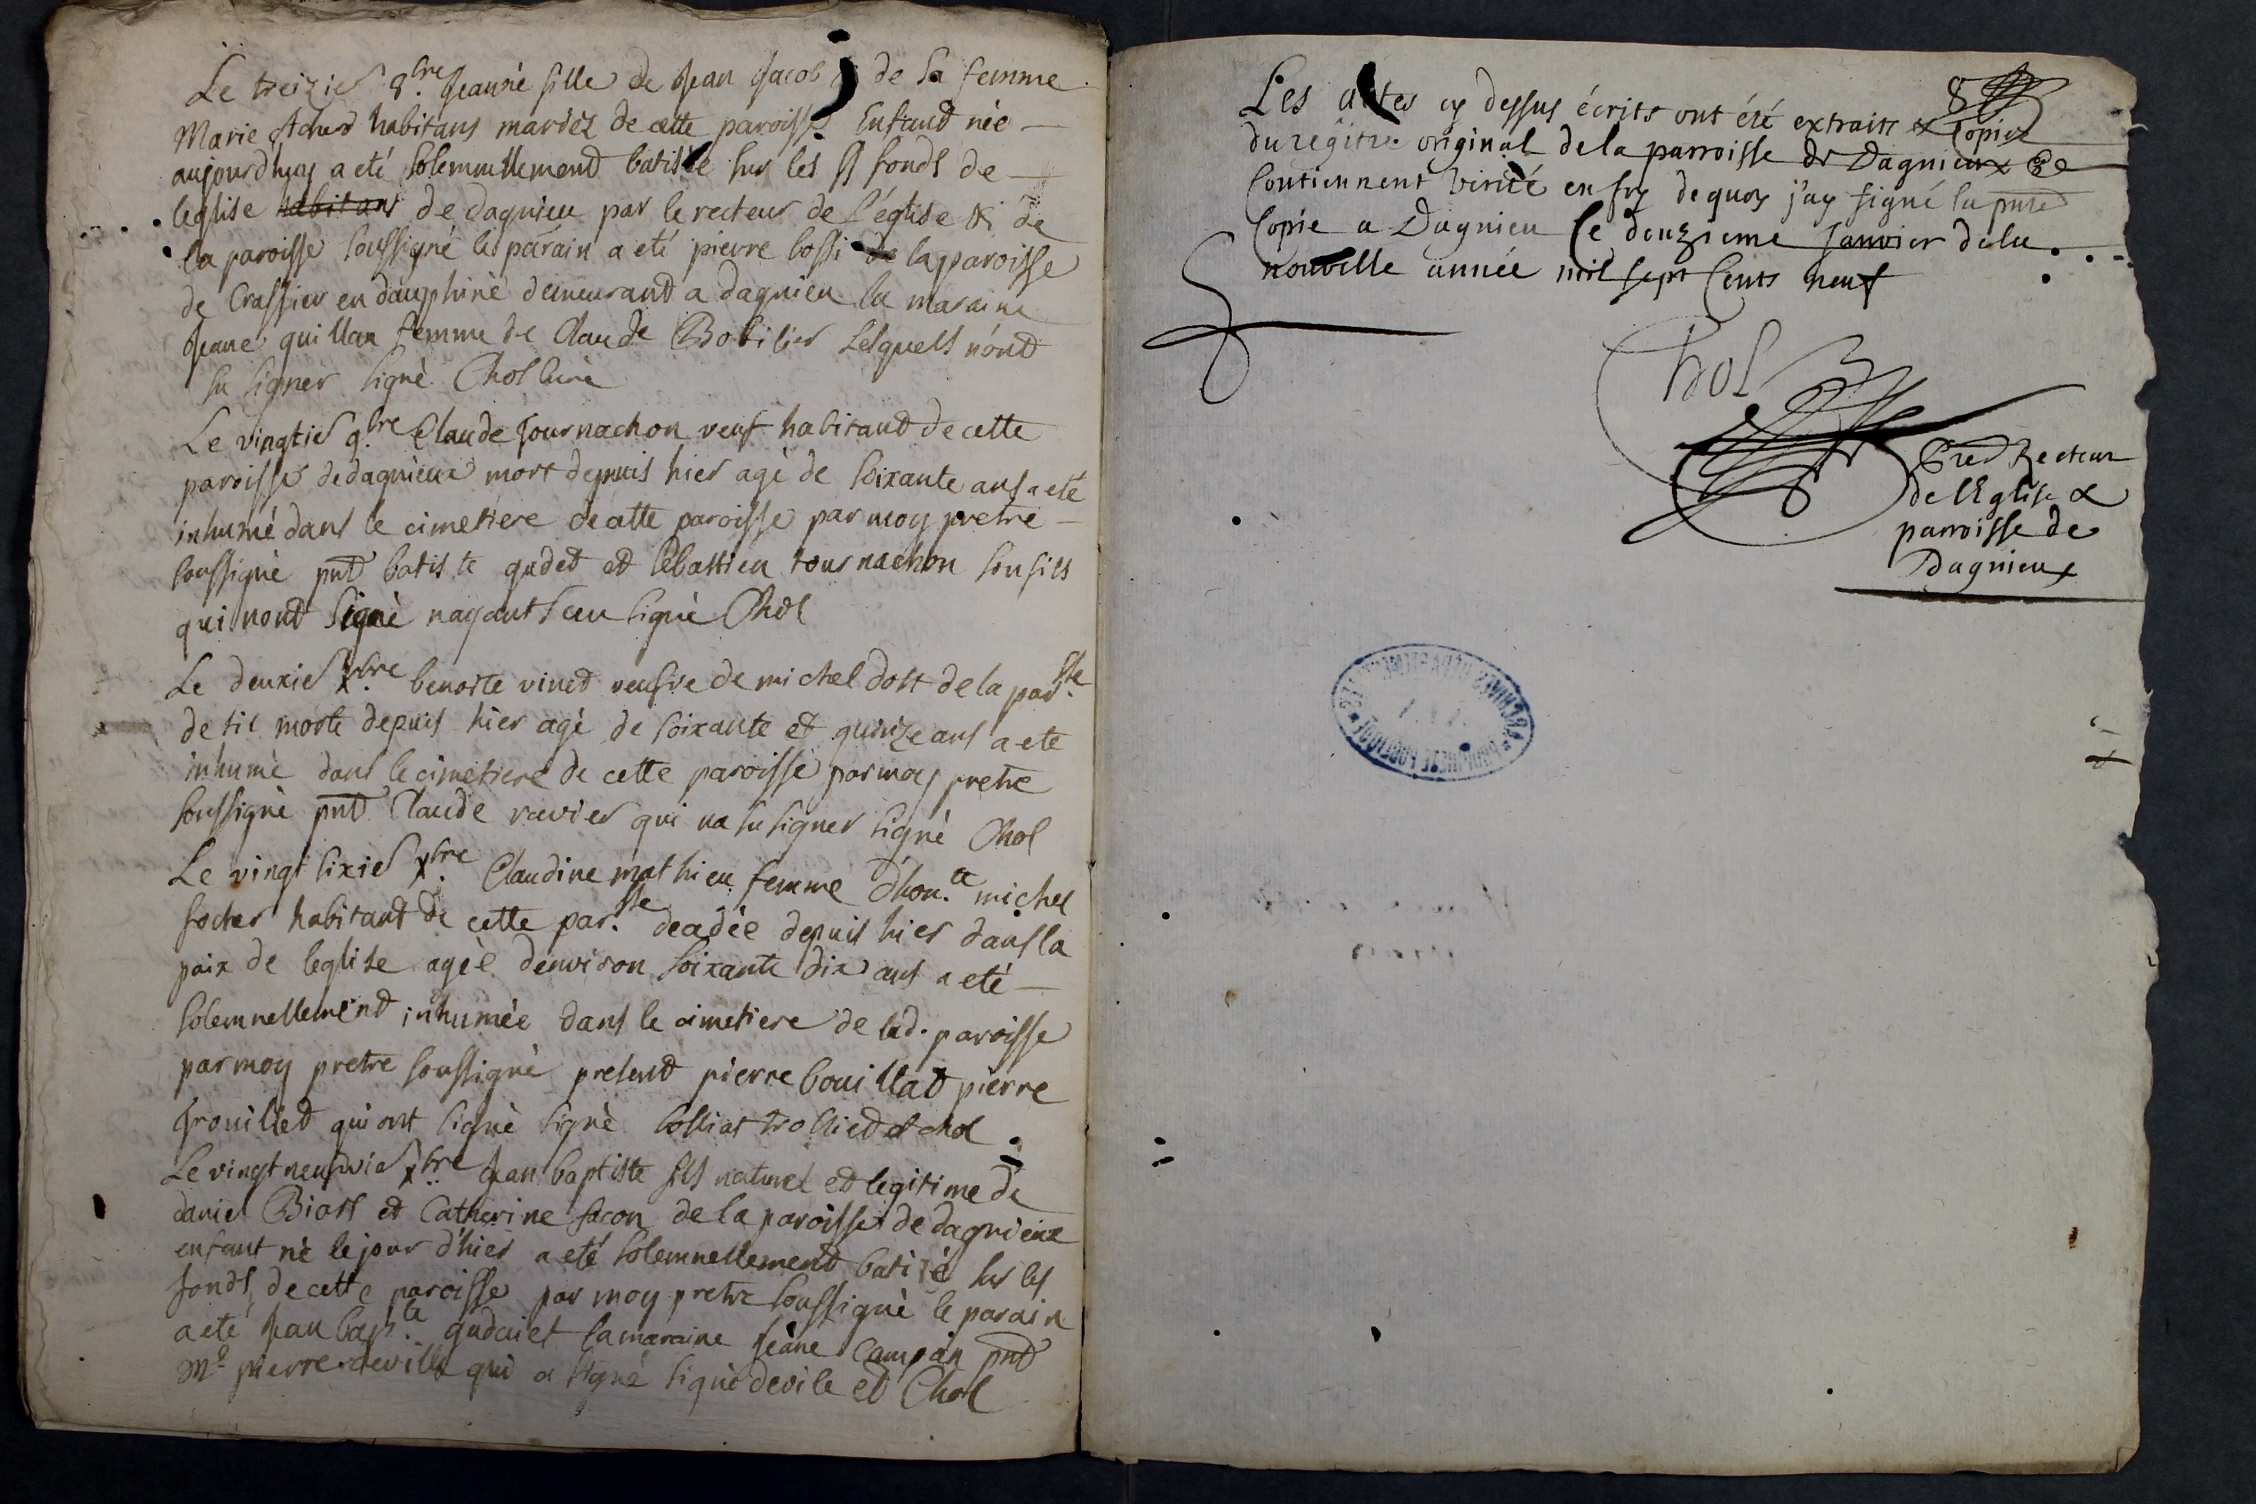 Le treizie 8.bre Jeanne fille de Jean Jacob de sa femme
Marie habitans mariéz de cette paroisse Enfant née
aujourdhuy a eté solemnellement batisée sur les ss fonds de
leglise habitans de dagnieu par le recteur de l'église & de
la paroisse soussigné le parain a eté pierre bossi de la paroisse
de Crassier en dauphiné demeurant a dagnieu la maraine
Jeane quillan femme de Claude Bobilier lesquels n'ont
su signer signé Chol curé
Le vingtie 9.bre Claude Tournachon veuf habitant de cette
paroisse de dagnieux mort depuis hier agé de soixante ans a eté
inhumé dans le cimetiere de cette paroisse par moy pretre
soussigné pnt batiste gudet et sebastien tournachon son fils
qui n'ont signé nayant sceu signé Chol
Le deuxie xbre benoite vinet veufve de michel dost de la par.sse
de til morte depuis hier agé de soixante et quinze ans a ete
inhumé dans le cimetiere de cette paroisse par moy pretre
soussigné pnt Claude ravier qui na su signer signé Chol
Le vingt sixie xbre Claudine mathieu femme d'hon.te michel
focher habitant de cette par.sse decadée depuis hier dans la
paix de leglise agée denviron soixante dix ans a eté
solemnellement inhumée dans le cimetiere de lad. paroisse
par moy pretre soussigné present pierre bouillat pierre
trouilliet qui ont signé signé bolliat trolliet et chol
Le vingt neufvie xbre Jean baptiste fils naturel et legitime de
daniel Biost et Catherine facon de la paroisse de dagnieux
enfant né le jour d'hier a eté solemnellement batisé sur les
fonds de cette paroisse par moy pretre soussigné le parain
a eté Jean bap.te gudaiet la maraine Jeane Campan pnt
Me pierre deville qui a signé signé devile et Chol
8
Les actes cy dessus écrits ont été extraits & Copiéz
du regitre original de la parroisse de Dagnieux &
Contiennent verité en foy de quoy j'ay signé la pnte
Copie a Dagnieu Ce douzieme Janvier de la
nouvelle année mil sept Cents neuf
Chol
Pret Recteur
de l'Eglise &
parroisse de
Dagnieux